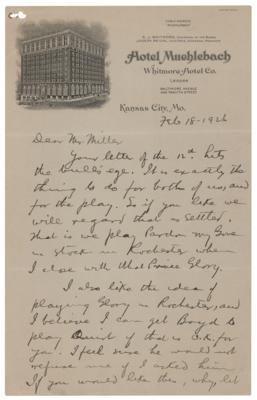 Hotel Muehlebach
Whitmore Hotel Co.
Lessee
Baltimore Avenue
and Twelfth Street
Kansas City, Mo.
Feb 18-1926
Dear Mr Miller
Your letter of the 12th hits
the bull's eye. It is exactly the
thing to do for both of us, and
for the play. So if you like we
will regard that as settled.
That is we play Pardon my Glove
in stock in Rochester when
I close with What Price Glory.
I also like the idea of
playing Glory in Rochester, and
I believe I can get Boyd to
play Quirt if that is O.K. for
you. I feel sure he would not
refuse me if I asked him
If you would like this, why let